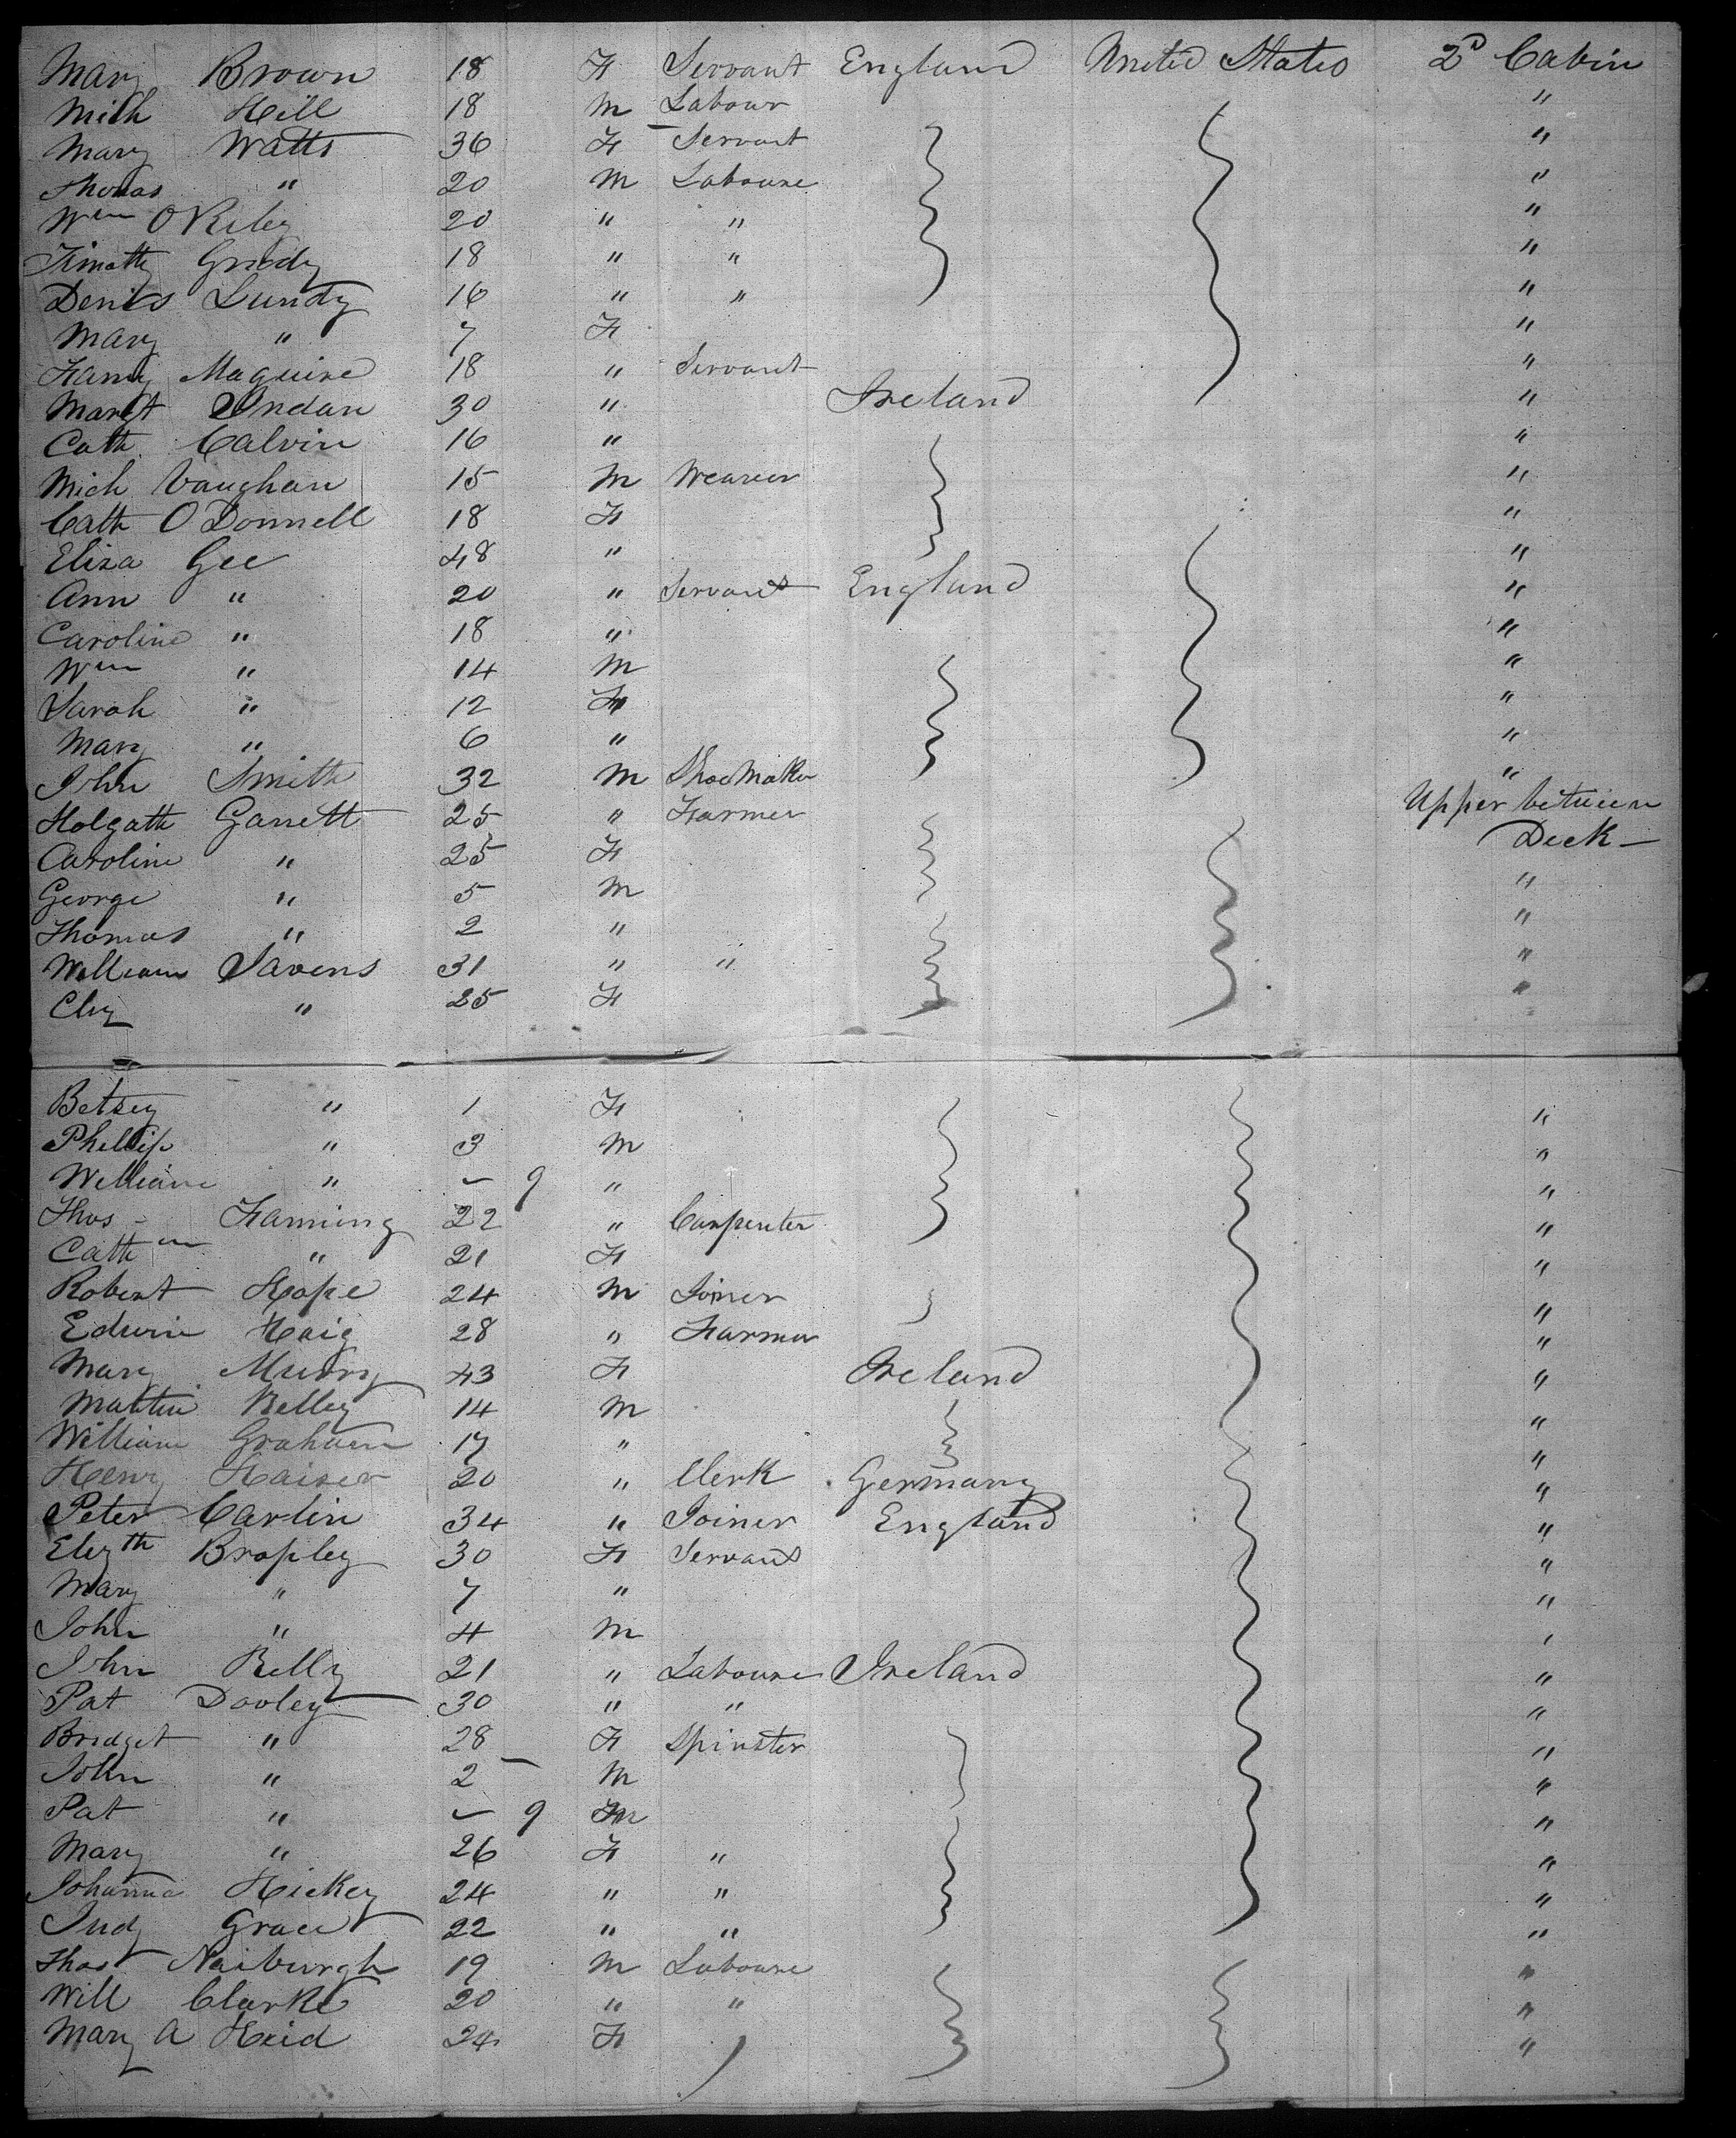 Mary Brown 18 F Servant England United States 2D Cabin
Mich Hill 18 M Labour "
Mary Watts 36 F Servant "
Thomas " 20 M Laboure "
Wm O Riley 20 " " "
Timothy Grady 18 " " "
Denis Lundy 16 " " "
Mary " 7 F "
Fanny Maguire 18 " Servant "
Margt 30 " Ireland "
Cath Calvin 16 " "
Mich Vaughan 15 M Weaver "
Cath O Donnell 18 F "
Eliza Gee 48 " "
Ann " 20 " Servant England "
Caroline " 18 " "
Wm " 14 M "
Sarah " 12 F "
Mary " 6 " "
John Smith 32 M Shoe Maker "
Holgath Garrett 25 " Farmer Upper between
Caroline " 25 F Deck —
George " 5 M "
Thomas " 2 " "
William Savens 31 " " "
Eliz " 25 F "
Betsey " 1 F "
Phillip " 3 M "
William " – 9 " "
Thos - Faning 22 " Carpenter "
Cath " 21 F "
Robert Hope 24 M Joiner "
Edwin Haig 28 " Farmer "
Mary Murry 43 F Ireland "
Martin Kelley 14 M "
William Graham 17 " "
Henry Kaiser 20 " Clerk Germany "
Peter Carlin 34 " Joiner England "
Elizth Bropley 30 F Servant "
Mary " 7 " "
John " 4 M '
John Kelly 21 " Laboure Ireland "
Pat Dooley 30 " " "
Bridget " 28 F Spinster "
John " 2 – M "
Pat " – 9 M "
Mary " 26 F " "
Johanna Hickey 24 " " "
Judy Grace 22 " " "
Thos Naiburgh 19 M Laboure "
Will Clarke 20 " " "
Mary A Heid 24 F "